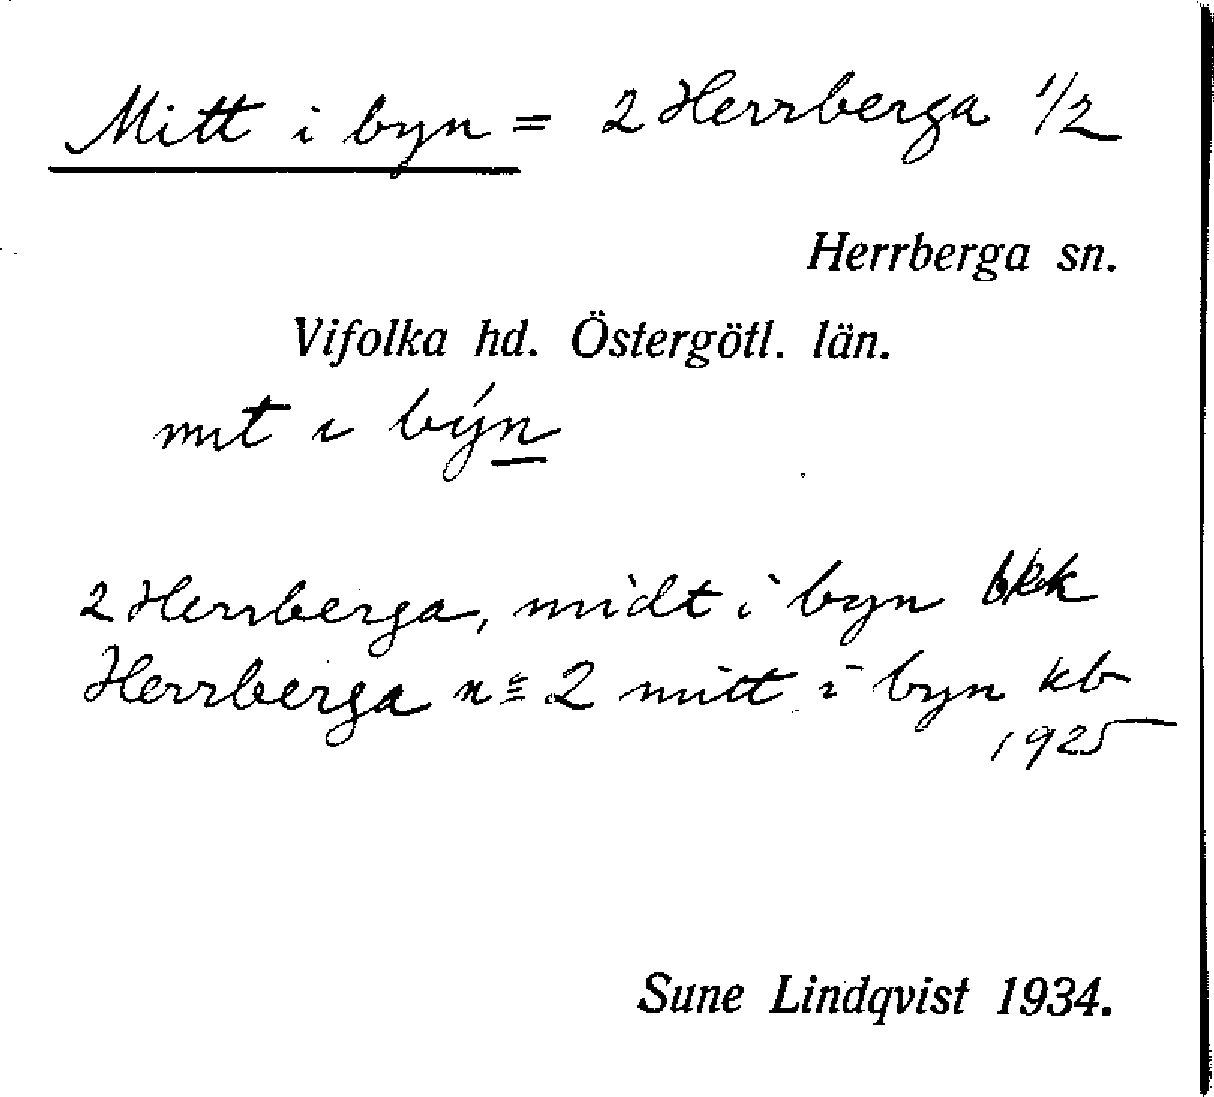 Mitt i byn = 2 Herrberga 1/2
Herrberga sn.
Vifolka hd. Östergötl. län.
mit i býn
2 Herrberga, midt i byn
Herrberga n:o 2 mitt i byn kb
1925
Sune Lindqvist 1934.